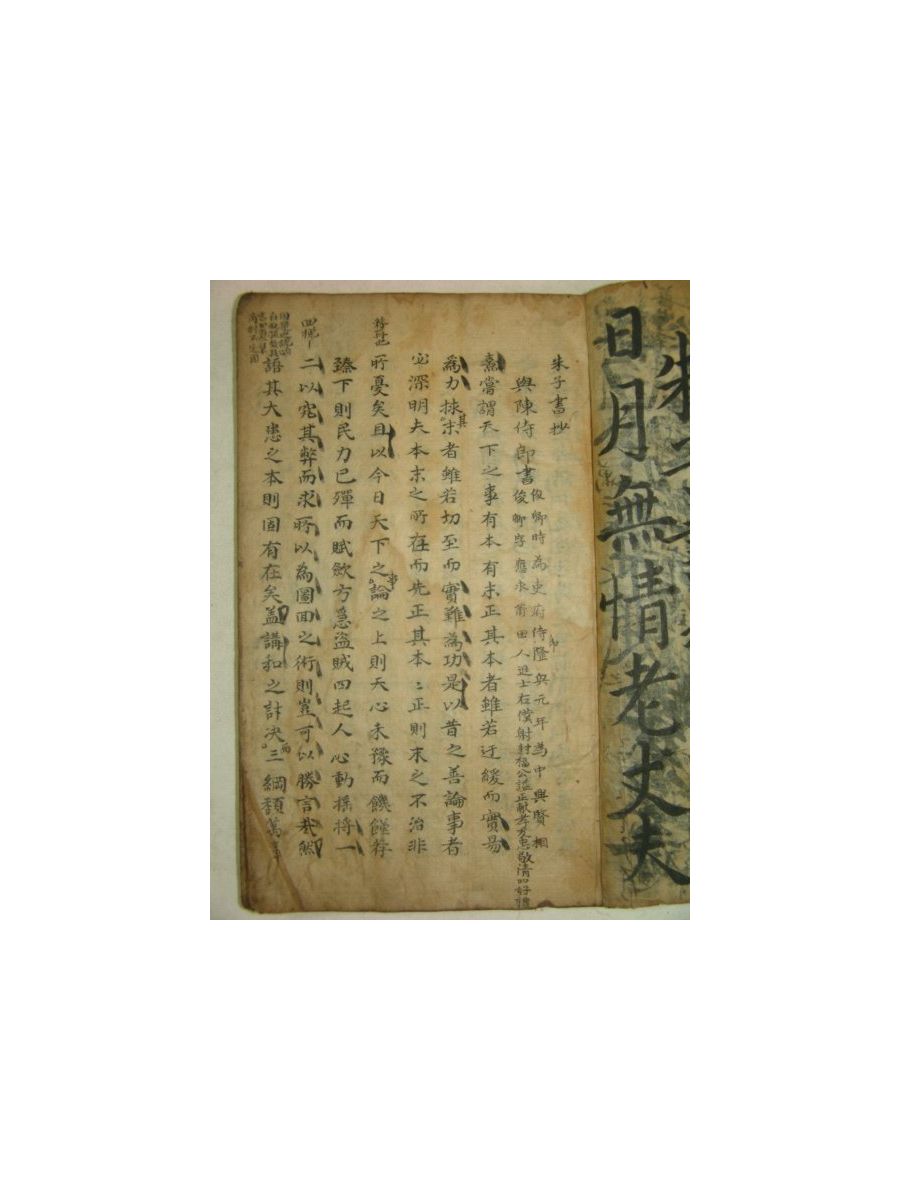 日月無情老丈夫
朱子書抄
與陳侍郎書
俊卿時為吏府侍郎隆興元年為中興賢相
俊卿字應求莆田人進士右僕射封福公諡正獻孝友忠敬清
熹嘗謂天下之事有本有末正其本者雖若迂緩而實易
為力捄其末者雖若切至而實難為功是以昔之善論事者
必深明夫本末之所在而先正其本〻正則末之不治非
所憂矣且以今日天下之事論之上則天心未豫而饑饉荐
臻下則民力已殫而賦歛方急盜賊四起人心動搖將一
二以究其弊而求所以為圖回之術則豈可以勝言哉然
語其大患之本則固有在矣盖講和之計决而三綱頹萬事